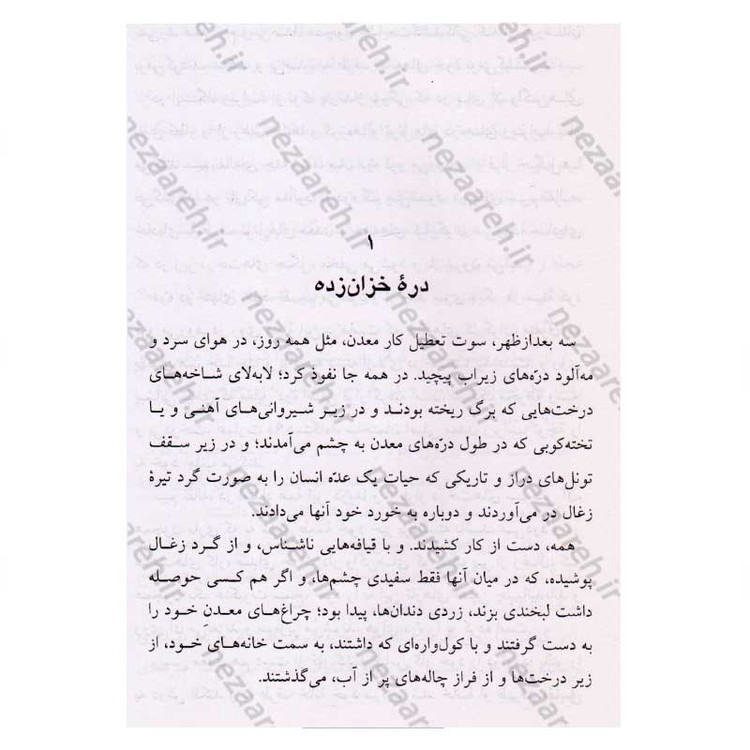 ۱
درهٔ خزان‌زده
سه بعدازظهر، سوت تعطیل کار معدن، مثل همه روز، در هوای سرد و
مه‌آلود درّه‌های زیراب پیچید. در همه جا نفوذ کرد؛ لابه‌لای شاخه‌های
درخت‌هایی که برگ ریخته بودنـد و در زیـر شیـروانی‌هـای آهنـی و یـا
تخته‌کوبی که در طول درّه‌های معدن به چشم می‌آمدند؛ و در زیر سقف
تونل‌های دراز و تاریکی که حیات یک عدّه انسان را به صورت گرد تیرهٔ
زغال در می‌آوردند و دوباره به خورد خود آنها می‌دادند.
همه، دست از کار کشیدند. و با قیافه‌هایی ناشناس، و از گـرد زغـال
پوشیده، که در میان آنها فقط سفیدی چشم‌ها، و اگر هم کسـی حوصـله
داشت لبخندی بزند، زردی دندان‌ها، پیدا بود؛ چراغ‌های معدنِ خـود را
به دست گرفتند و با کول‌واره‌ای که داشتند، به سمت خانه‌های خود، از
زیر درخت‌ها و از فراز چاله‌های پر از آب، می‌گذشتند.
nezaareh.ir
nezaareh.ir
nezaareh.ir
nezaareh.ir
nezaareh.ir
nezaareh.ir
nezaareh.ir
nezaareh.ir